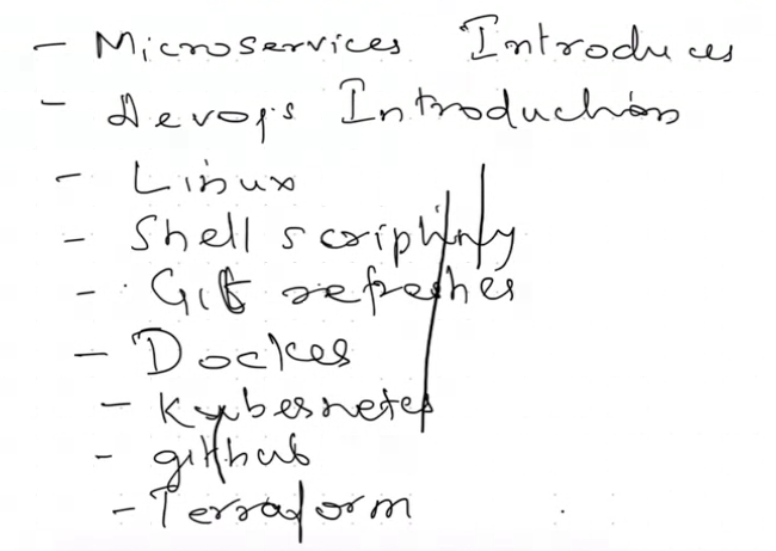 - Microservices Introduces
- Devops Introduction
- Linux
- Shell scripting
- Git refresher
- Docker
- Kubernetes
- github
- Terraform